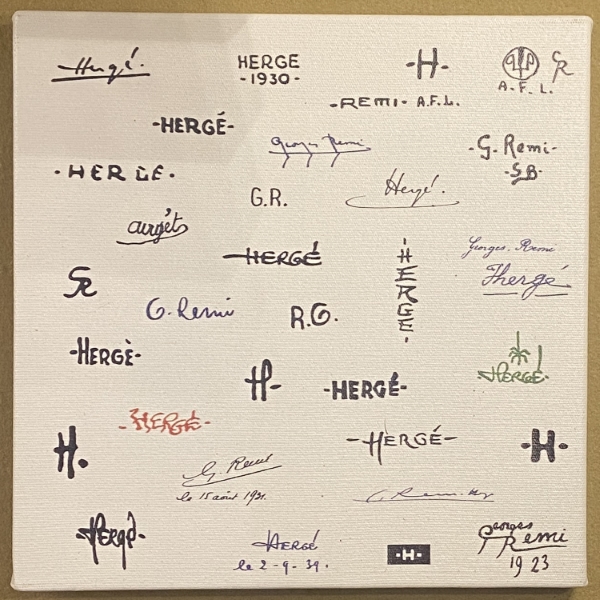 Hergé.
HERGÉ
-1930-
-H-
A.F.L.
GR
-REMI- A.F.L.
-HERGÉ-
Georges Remi
-G. Remi-
-SB-
-HERGÉ-
G.R.
Hergé.
airgèts
-HERGÉ
-HERGÉ-
Georges. Remi
Hergé
GR
G. Remi
R.G.
-HERGÈ-
HERGÉ
H-
-HERGÉ-
-HERGÉ-
H.
-HERGÉ-
-H-
G Remi
le 15 août 1931.
-Hergé-
HERGÉ
le 2-9-39.
-H-
Georges
Remi
1923